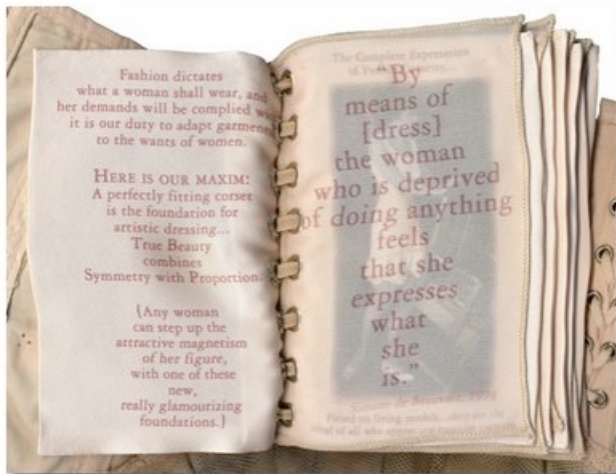 Fashion dictates
what a woman shall wear, and
her demands will be complied
it is our duty to adapt garmen
to the wants of women.
HERE IS OUR MAXIM:
A perfectly fitting corset
is the foundation for
artistic dressing...
True Beauty
combines
Symmetry with Proportion.
{Any woman
can step up the
attractive magnetism
of her figure,
with one of these
new,
really glamourizing
foundations.}
The Complete Expression
of
"By
means of
[dress]
the woman
who is deprived
of doing anything
feels
that she
expresses
what
she
is."
Simone de Beauvoir,
Fitted on living models...
of all who